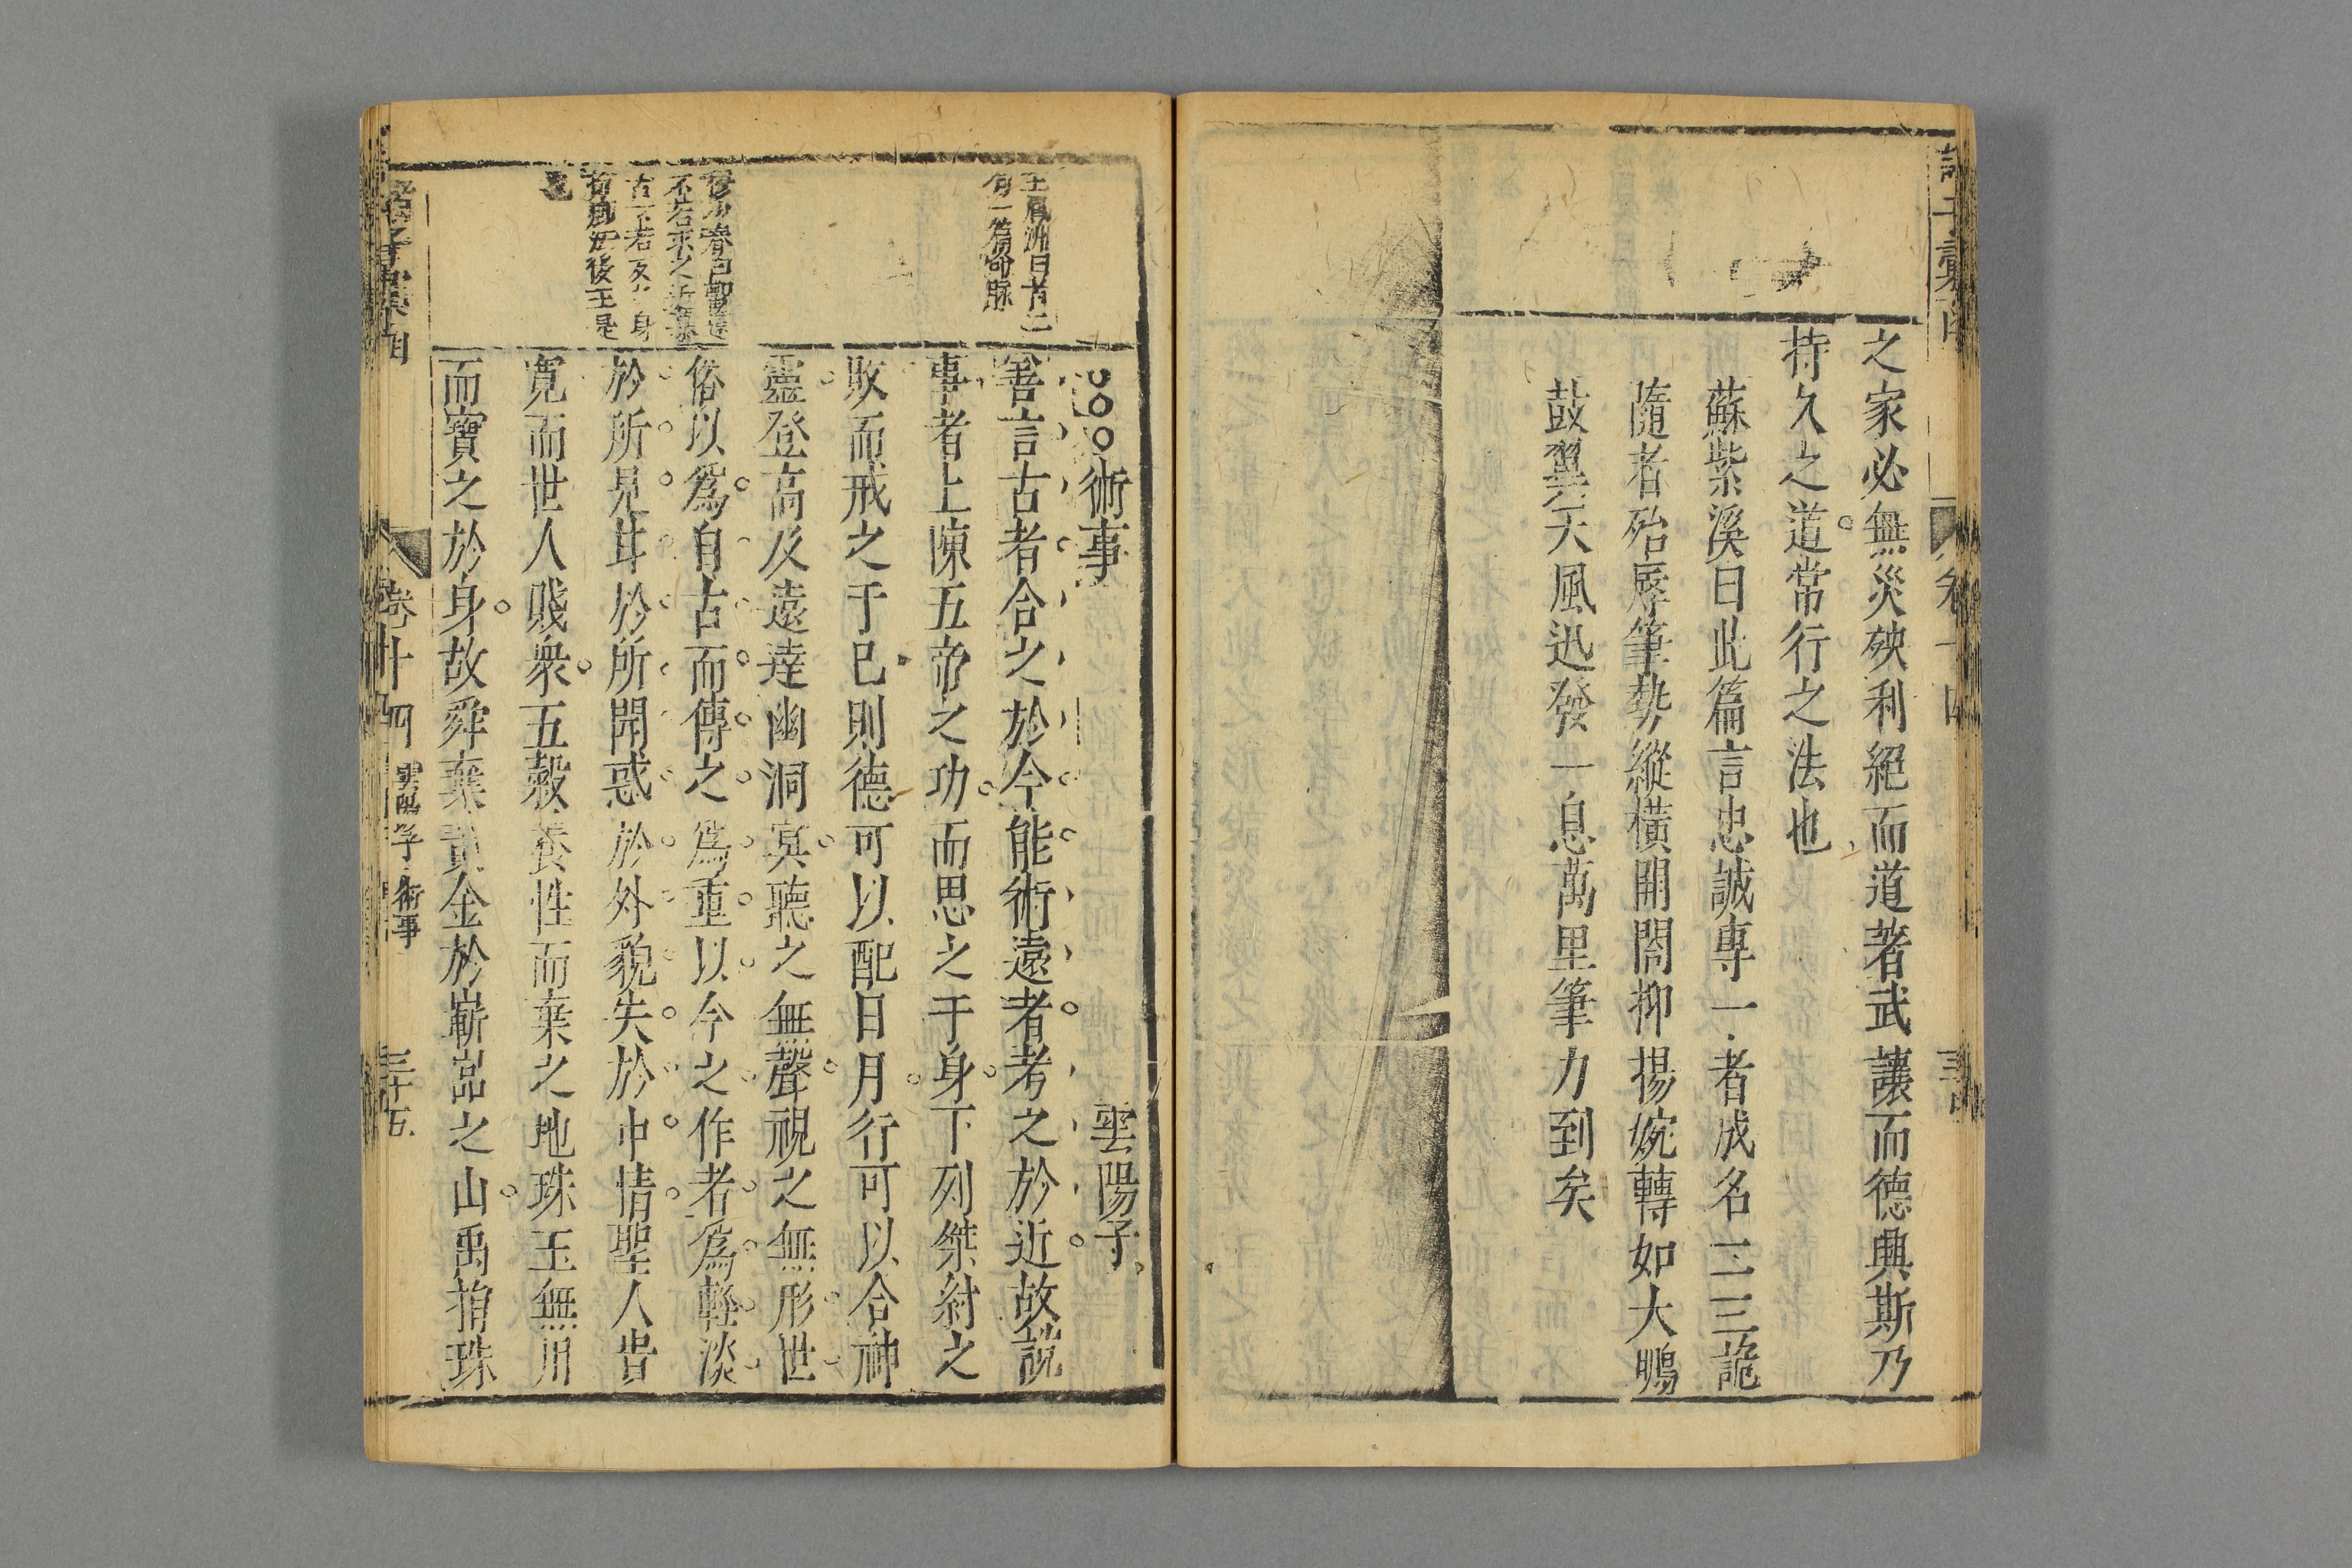 之家必無災殃利絕而道著武讓而德興斯乃
持久之道常行之法也
蘇紫溪曰此篇言忠誠專一者成名二三詭
隨者殆辱筆勢縱橫開闔抑揚婉轉如大鵬
鼓翼天風迅發一息萬里筆力到矣
術事
雲陽子
王鳳洲曰首二
句一篇命脉
善言古者合之於今能術遠者考之於近故說
事者上陳五帝之功而思之于身下列桀紂之
敗而戒之于已則德可以配日月行可以合神
靈登高及遠達幽洞冥聽之無聲視之無形世
俗以爲自古而傳之爲重以今之作者爲輕淡
於所見甘於所聞惑於外貌失於中情聖人貴
寬而世人賤衆五穀養性而棄之地珠玉無用
而寳之於身故舜棄黃金於嶄嵓之山禹捐珠
不若求之近慕
古不若反
後王是
卷十四
雲陽子
術事
三十五